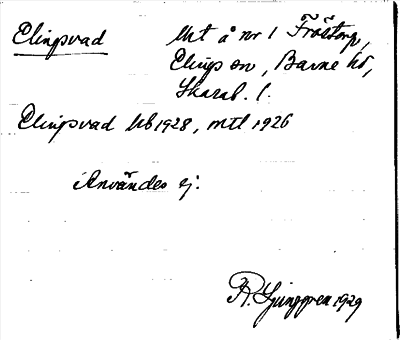 Elingsvad Ut å nr 1 Fröstorp,
Elings sn, Barne hd,
Skarab. l.
Elingsvad kb 1928, mtl 1926
Användes ej.
R. Ljunggren 1929